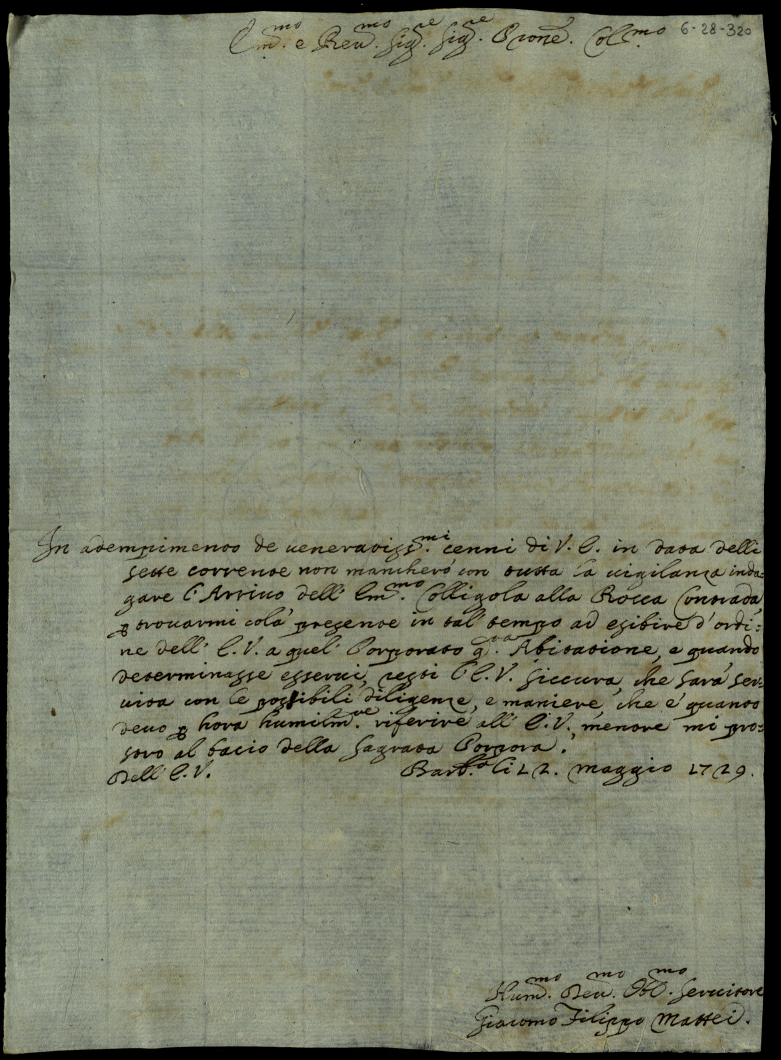 Em.mo e Rev.mo Sig.re Sig.re Prone. Col.mo 6-28-320
In adempimento de veneratiss.mi cenni di V. E. in data delli
sette corrente non mancherò con tutta la vigilanza inda=
gare l'Arrivo dell' Em.mo Colligola alla Rocca Contrada,
p trovarmi colà presente in tal tempo ad esibire d'ordi=
ne dell' E. V. a quel Porporato q.ta Abitatione, e quando
determinasse esservi, resti l'E. V. siccura, che sarà ser=
vita con le possibili diligenze, e maniere, che è quanto
devo p hora humilm.te riferire all' E. V., mentre mi pro=
stro al bacio della Sagrata Porpora.
Dell' E. V. Barb.a li 12. maggio 1729.
Hum.mo Dev.mo Obl.mo Servitore
Giacomo Filippo Mattei.